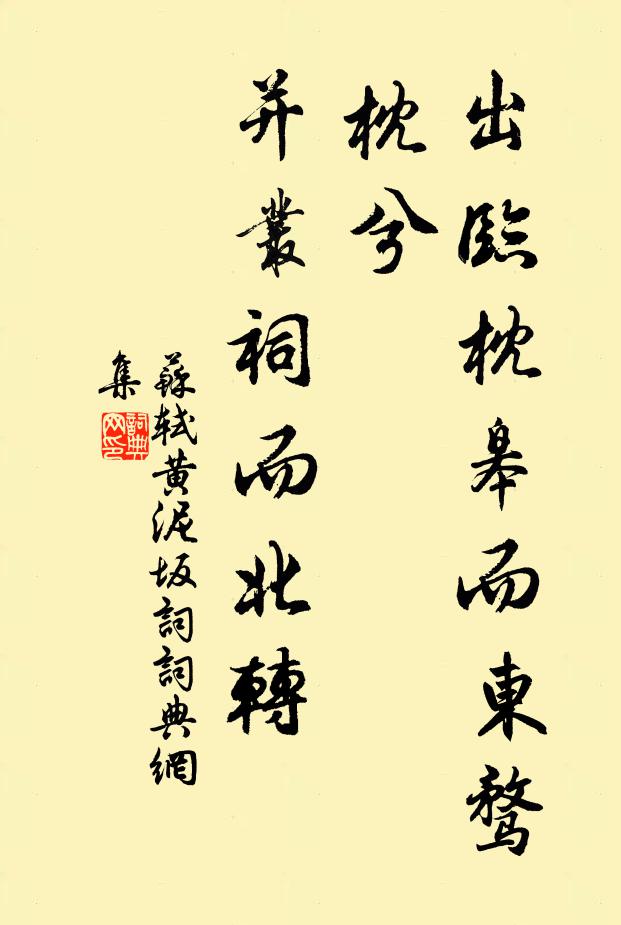 出臨枕皋而東騖
枕兮
并叢祠而北轉
蘇軾黄泥坂詞詞典網
集
詞典
网印